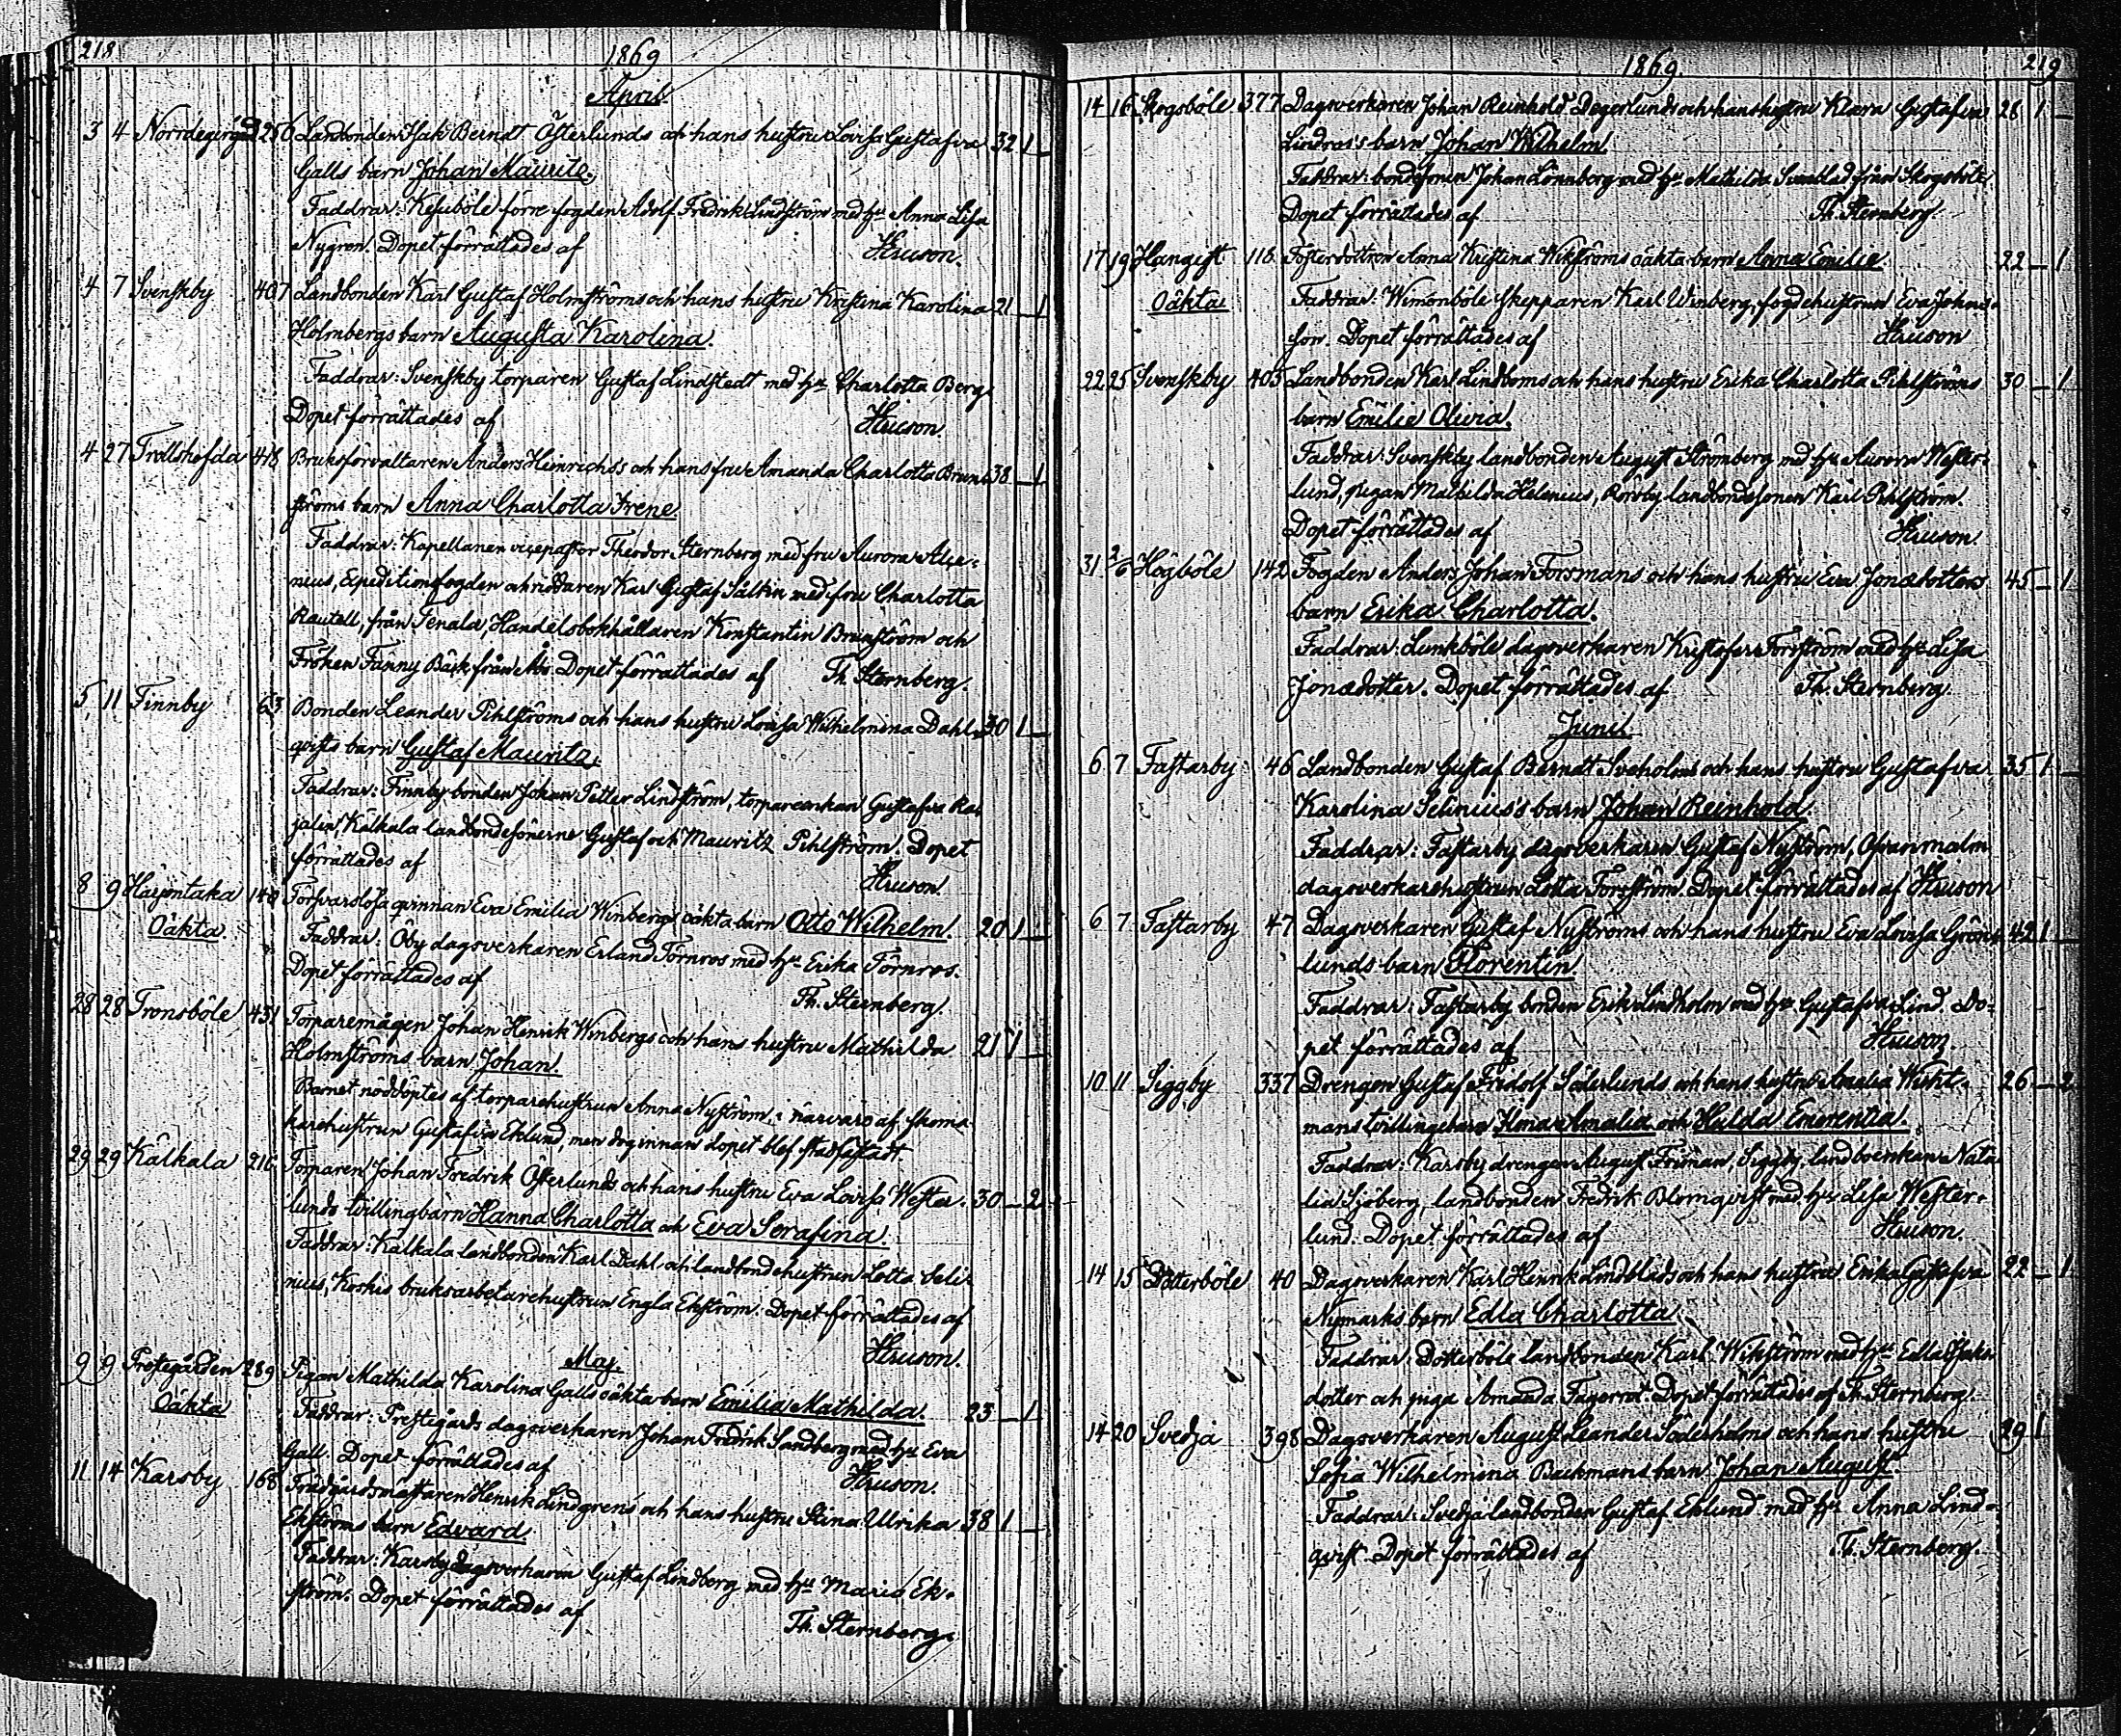 218
1869
April.
3 4 256 Landbonden Isak Berndt Österlunds och hans hustru Lovisa Gustafva 32 1 —
Galls barn Johan Mauritz.
Faddrar: förre fogden Adolf Fredrik Lindström med hu Anna Lisa
Nygren. Dopet förrättades af
4 7 Svenskby 407 Landbonden Karl Gustaf Holmströms och hans hustru Kristina Karolina 21 — 1
Holmbergs barn Augusta Karolina.
Faddrar: Svenskby torparen Gustaf Lindstedt med hu Charlotta Berg.
Dopet förrättades af
4 27 Trollshofda 418 Bruksförvaltaren Anders Heinrichs's och hans fru Amanda Charlotta Brun- 38 — 1
ströms barn Anna Charlotta Irene.
Faddrar: Kapellanen vicepastor Theodor Sternberg med fru Aurora Ale-
nius, Expeditionsfogden och riddaren Karl Gustaf Sältin med fru Charlotta
Rautell, från Tenala, Handelsbokhållaren Konstantin Brunström och
Fröken Fanny Bäck från Åbo. Dopet förrättades af Th. Sternberg.
5 11 Finnby 63 Bonden Leander Pihlströms och hans hustru Lovisa Wilhelmina Dahl- 30 1 —
qvists barn Gustaf Mauritz.
Faddrar: Finnby bonden Johan Petter Lindström, torpareenkan Gustafva Ka-
jalin, Kälkala landbondesönerne Gustaf och Mauritz Pihlström. Dopet
förrättades af
8 9 Harpentaka 140 Försvarslösa qvinnan Eva Emilia Winbergs oäkta barn Otto Wilhelm. 20 1 —
Oäkta. Faddrar: Öby dagsverkaren Erland Törnros med hu Erika Törnros.
Dopet förrättades af Th. Sternberg.
28 28 Tronsböle 431 Torparemågen Johan Henrik Winbergs och hans hustru Mathilda 21 1 —
Holmströms barn Johan.
Barnet nöddöptes af torparehustrun Anna Nyström, i närvaro af skoma-
karehustrun Gustafva Eklund, men dog innan dopet blef stadfästadt
29 29 Kälkala 216 Torparen Johan Fredrik Österlunds och hans hustru Eva Lovisa Wester- 30 — 2
lunds tvillingbarn Hanna Charlotta och Eva Serafina.
Faddrar: Kälkala landbonden Karl Dahl och landbondehustrun Lotta Seli-
nius, Koskis bruksarbetarehustrun Engla Ekström. Dopet förrättades af
Maj.
9 9 Prestegården 289 Pigan Mathilda Karolina Galls oäkta barn Emilia Mathilda. 23 — 1
Oäkta Faddrar: Prestegårds dagsverkaren Johan Fredrik Sandberg med hu Eva
Gall. Dopet förrättades af
11 14 Karsby 168 Trädgårdsmästaren Henrik Lindgrens och hans hustru Stina Ulrika 38 1 —
Ekströms barn Edvard.
Faddrar: Karsby dagsverkaren Gustaf Lindberg med hu Maria Ek-
ström. Dopet förrättades af Th. Sternberg.
219
1869.
14 16 Skogsböle 377 Dagsverkaren Johan Reinhold Degerlunds och hans hustru Klara Gustafva 28 1 —
Lindroos's barn Johan Wilhelm.
Faddrar: bondesonen Johan Lönnberg med hu Mathilda från Skogsböle
Dopet förrättades af Th. Sternberg.
17 19 Hangist 116 Fosterdottren Anna Kristina Wikströms oäkta barn Anna Emilia. 22 — 1
Oäkta Faddrar: Wimonböle skepparen Karl Winberg, fogdehustrun Eva Johans-
son. Dopet förrättades af
22 25 Svenskby 405 Landbonden Karl Lindboms och hans hustru Erika Charlotta Pihlströms 30 — 1
barn Emilia Olivia.
Faddrar: Svenskby landbonden August Strömberg med hu Aurora Wester-
lund, pigan Mathilda Helenius, Rörsby landbondesonen Karl Pihlström.
Dopet förrättades af
31 2/6 Högböle 142 Fogden Anders Johan Forsmans och hans hustru Eva Jonædotters 45 — 1
barn Erika Charlotta.
Faddrar: Lunkböle dagsverkaren Kristofer Forström med hu Lisa
Jonædotter. Dopet förrättades af Th. Sternberg.
Juni.
6 7 Fastarby 46 Landbonden Gustaf Berndt Sveholms och hans hustru Gustafva 35 1 —
Karolina Selinius's barn Johan Reinhold.
Faddrar: Fastarby dagsverkaren Gustaf Nyström, Ofvanmalm
dagsverkarehustrun Lotta Forsström. Dopet förrättades af
6 7 Fastarby 47 Dagsverkaren Gustaf Nyströms och hans hustru Eva Lovisa Grön- 42 1 —
lunds barn Florentin.
Faddrar: Fastarby bonden Erik Lindholm med hu Gustafva Lind. Do-
pet förrättades af
10 11 Siggby 337 Drengen Gustaf Fridolf Söderlunds och hans hustru Amalia Wikt- 26 — 2
mans tvillingebarn Hma Amalia och Hulda Emerentia.
Faddrar: Karsby drengen August Friman, Siggby landboenkan Nata-
lia Sjöberg, landbonden Fredrik Blomqvist med hu Lisa Wester-
lund. Dopet förrättades af
14 15 Dotterböle 40 Dagsverkaren Karl Henrik Lindblads och hans hustru Erika Gustafva 22 — 1
Nymarks barn Edla Charlotta.
Faddrar: Dotterböle landbonden Karl Wikström med hu Edla Isaks-
dotter och piga Amanda Fagerrot. Dopet förrättades af Th. Sternberg.
14 20 Svedja 398 Dagsverkaren August Leander Söderholms och hans hustru 29 1
Sofia Wilhelmina Backmans barn Johan August.
Faddrar: Svedja landbonden Gustaf Eklund med hu Anna Lind-
qvist. Dopet förrättades af Th. Sternberg.